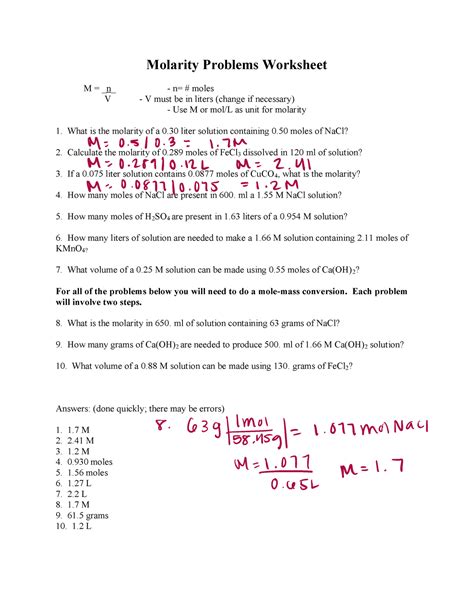 Molarity Problems Worksheet
M = n - n= # moles
V - V must be in liters (change if necessary)
- Use M or mol/L as unit for molarity
1. What is the molarity of a 0.30 liter solution containing 0.50 moles of NaCl?
M = 0.5 / 0.3 = 1.7M
2. Calculate the molarity of 0.289 moles of FeCl3 dissolved in 120 ml of solution?
M = 0.289 / 0.12L M = 2.41
3. If a 0.075 liter solution contains 0.0877 moles of CuCO4, what is the molarity?
M = 0.0877 / 0.075 = 1.2M
4. How many moles of NaCl are present in 600. ml a 1.55 M NaCl solution?
5. How many moles of H2SO4 are present in 1.63 liters of a 0.954 M solution?
6. How many liters of solution are needed to make a 1.66 M solution containing 2.11 moles of
KMnO4?
7. What volume of a 0.25 M solution can be made using 0.55 moles of Ca(OH)2?
For all of the problems below you will need to do a mole-mass conversion. Each problem
will involve two steps.
8. What is the molarity in 650. ml of solution containing 63 grams of NaCl?
9. How many grams of Ca(OH)2 are needed to produce 500. ml of 1.66 M Ca(OH)2 solution?
10. What volume of a 0.88 M solution can be made using 130. grams of FeCl2?
Answers: (done quickly; there may be errors)
1. 1.7 M
2. 2.41 M
3. 1.2 M
4. 0.930 moles
5. 1.56 moles
6. 1.27 L
7. 2.2 L
8. 1.7 M
9. 61.5 grams
10. 1.2 L
8. 63g | 1mol = 1.077 mol NaCl
58.45g
M = 1.077 M = 1.7
0.65L